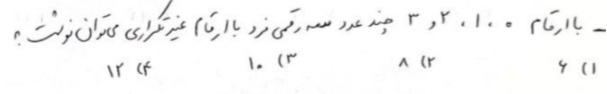 ـ با ارقام ۰، ۱، ۲ و ۳ چند عدد سه رقمی فرد با ارقام غیر تکراری می توان نوشت؟
۱) ۶ ۲) ۸ ۳) ۱۰ ۴) ۱۲